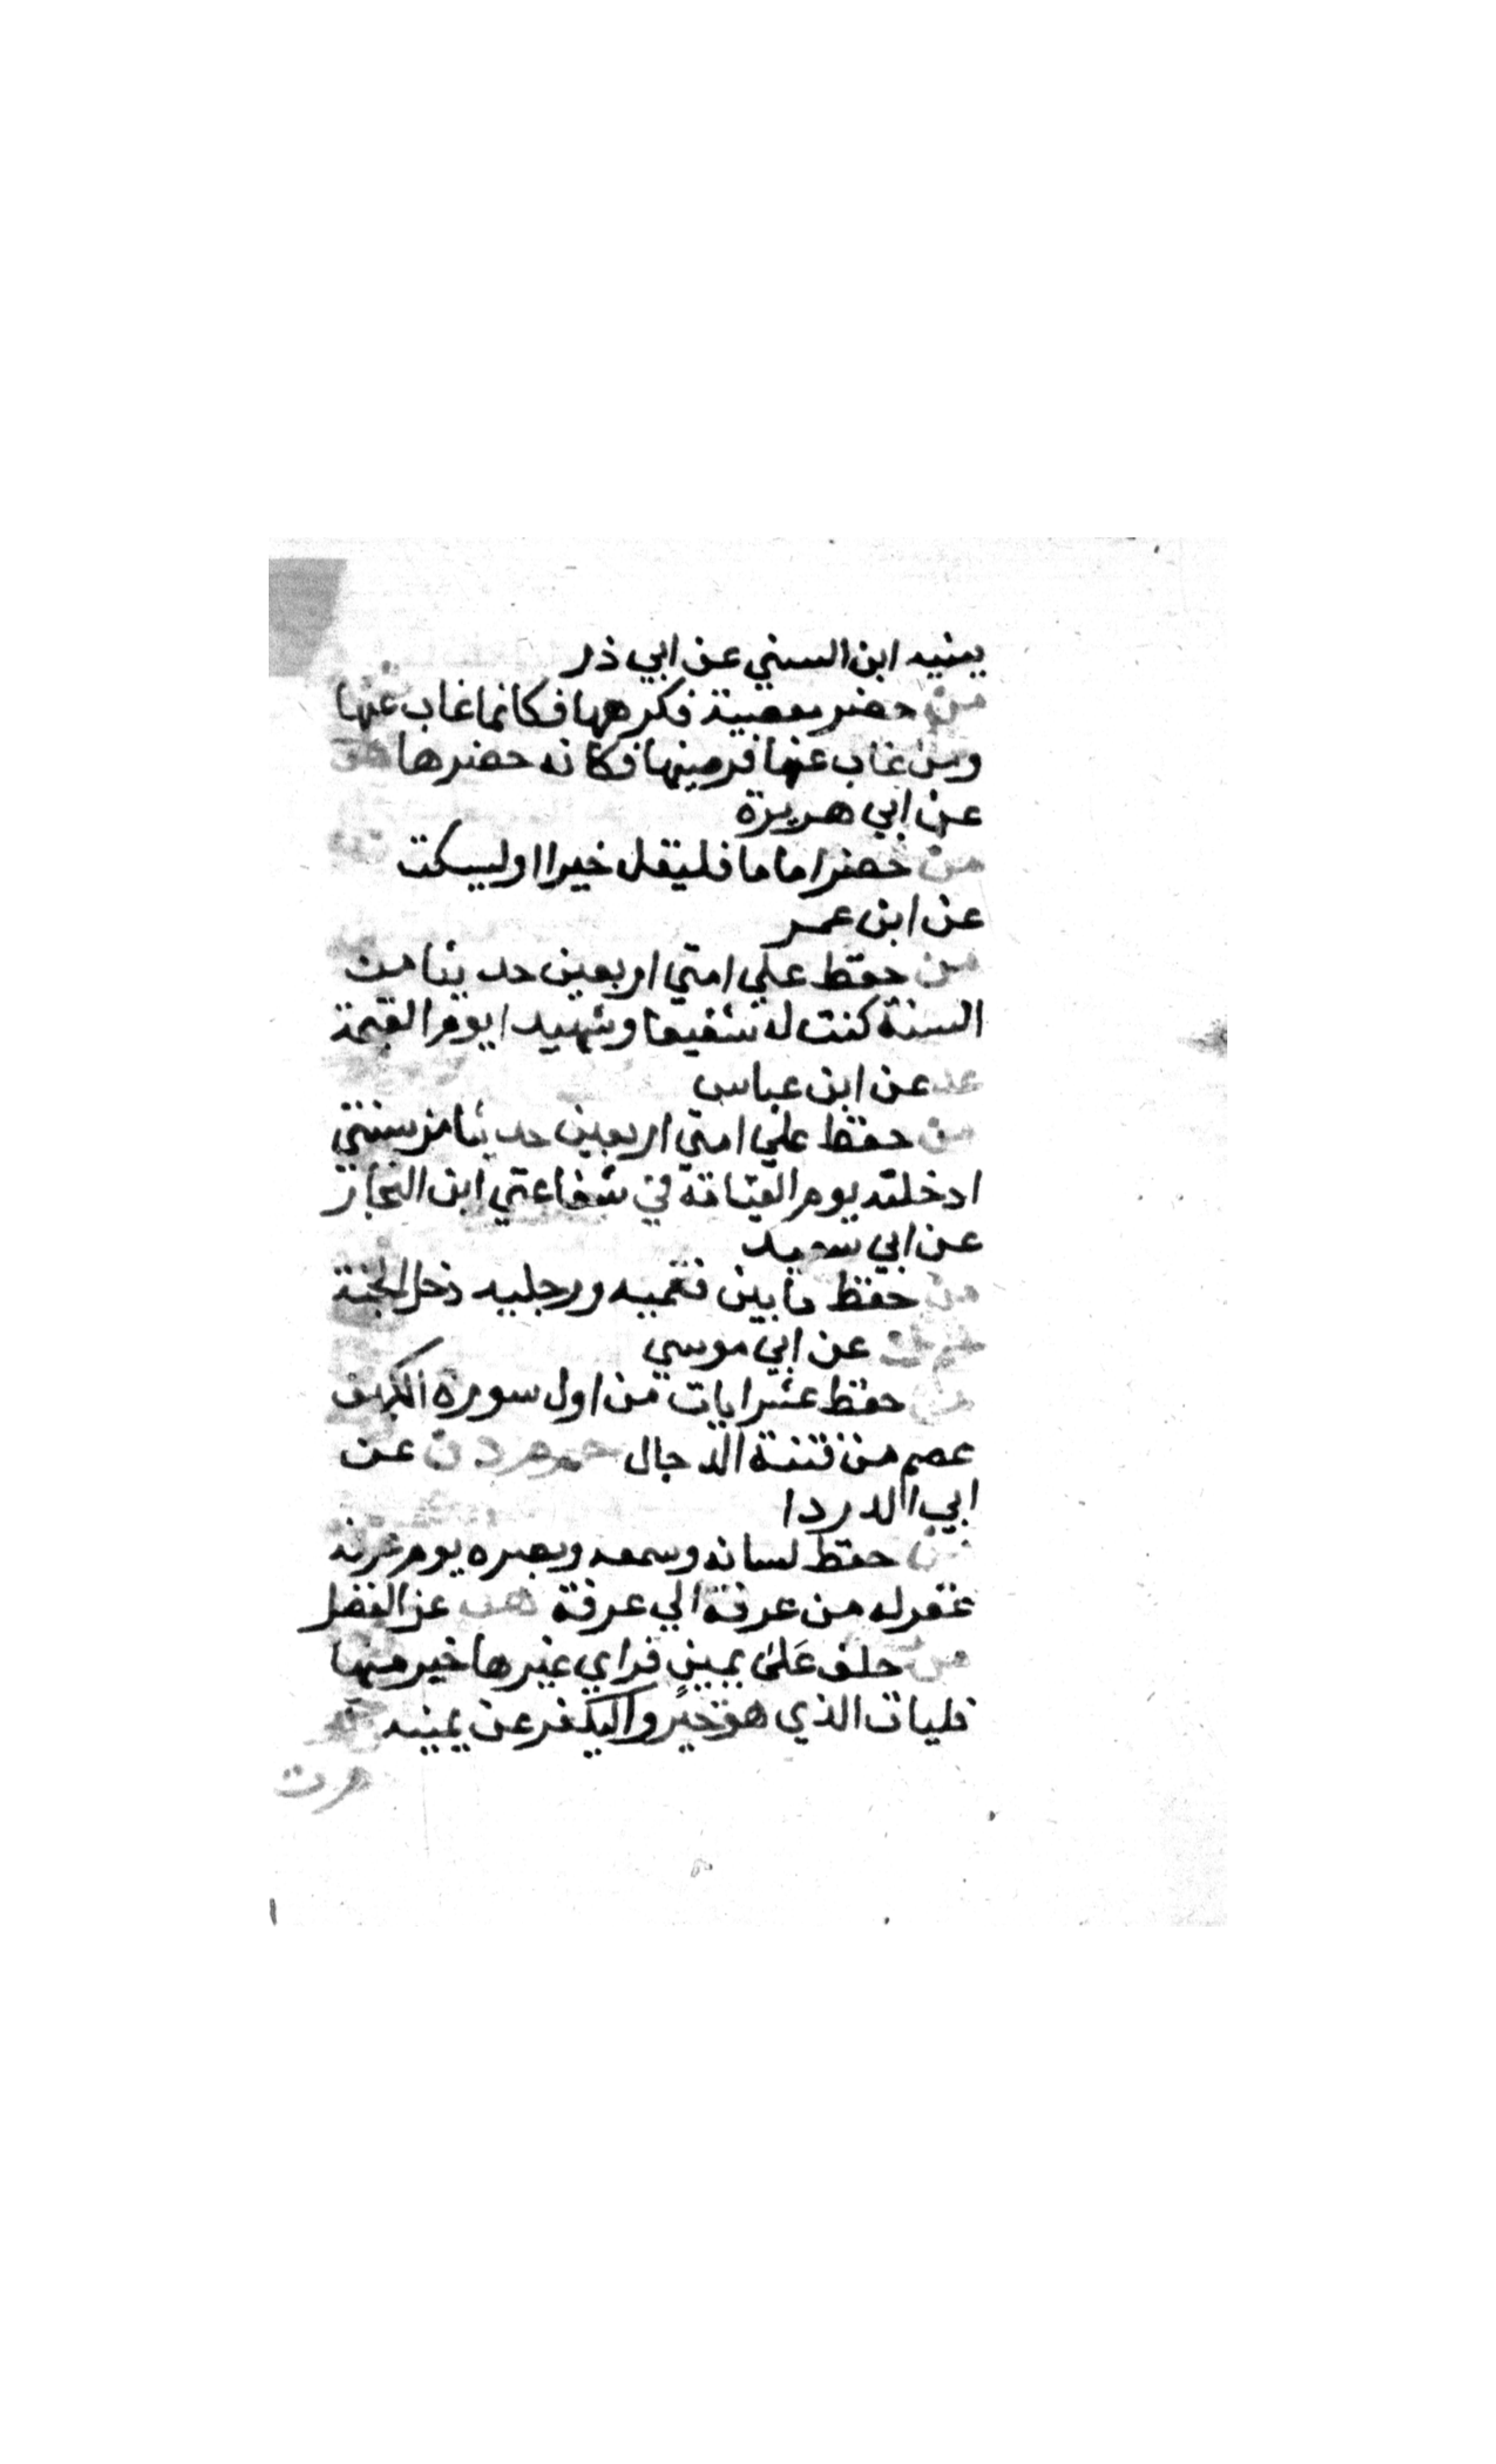 يمنيه ابن السني عن ابي ذر
من حضر معصية فكرهها فكانما غاب عنها
ومن غاب عنها فرضيها فكانه حضرها هق
عن ابي هريرة
من حضر اماما فليقل خيرا اوليسكت
عن ابن عمر
من حفظ علي امتي اربعين حديثا من
السنة كنت له شفيعا وشهيدا يوم القيمة
عد عن ابن عباس
من حفظ علي امتي اربعين حديثا من سنتي
ادخلته يوم القيامة في شفاعتي ابن النجار
عن ابي سعيد
من حفظ ما بين فقميه ورجليه دخل الجنة
عن ابي موسي
من حفظ عشر ايات من اول سورة الكهف
عصم من فتنة الدجال حم م د ن عن
ابي الدردا
من حفظ لسانه وسمعه وبصره يوم عرفه
غفر له من عرفة الي عرفة هب عن الفضل
من حلف عَلى يمين فراي غيرها خير منها
فليات الذي هو خيرٌ واليكفر عن يمينه حم
م ت